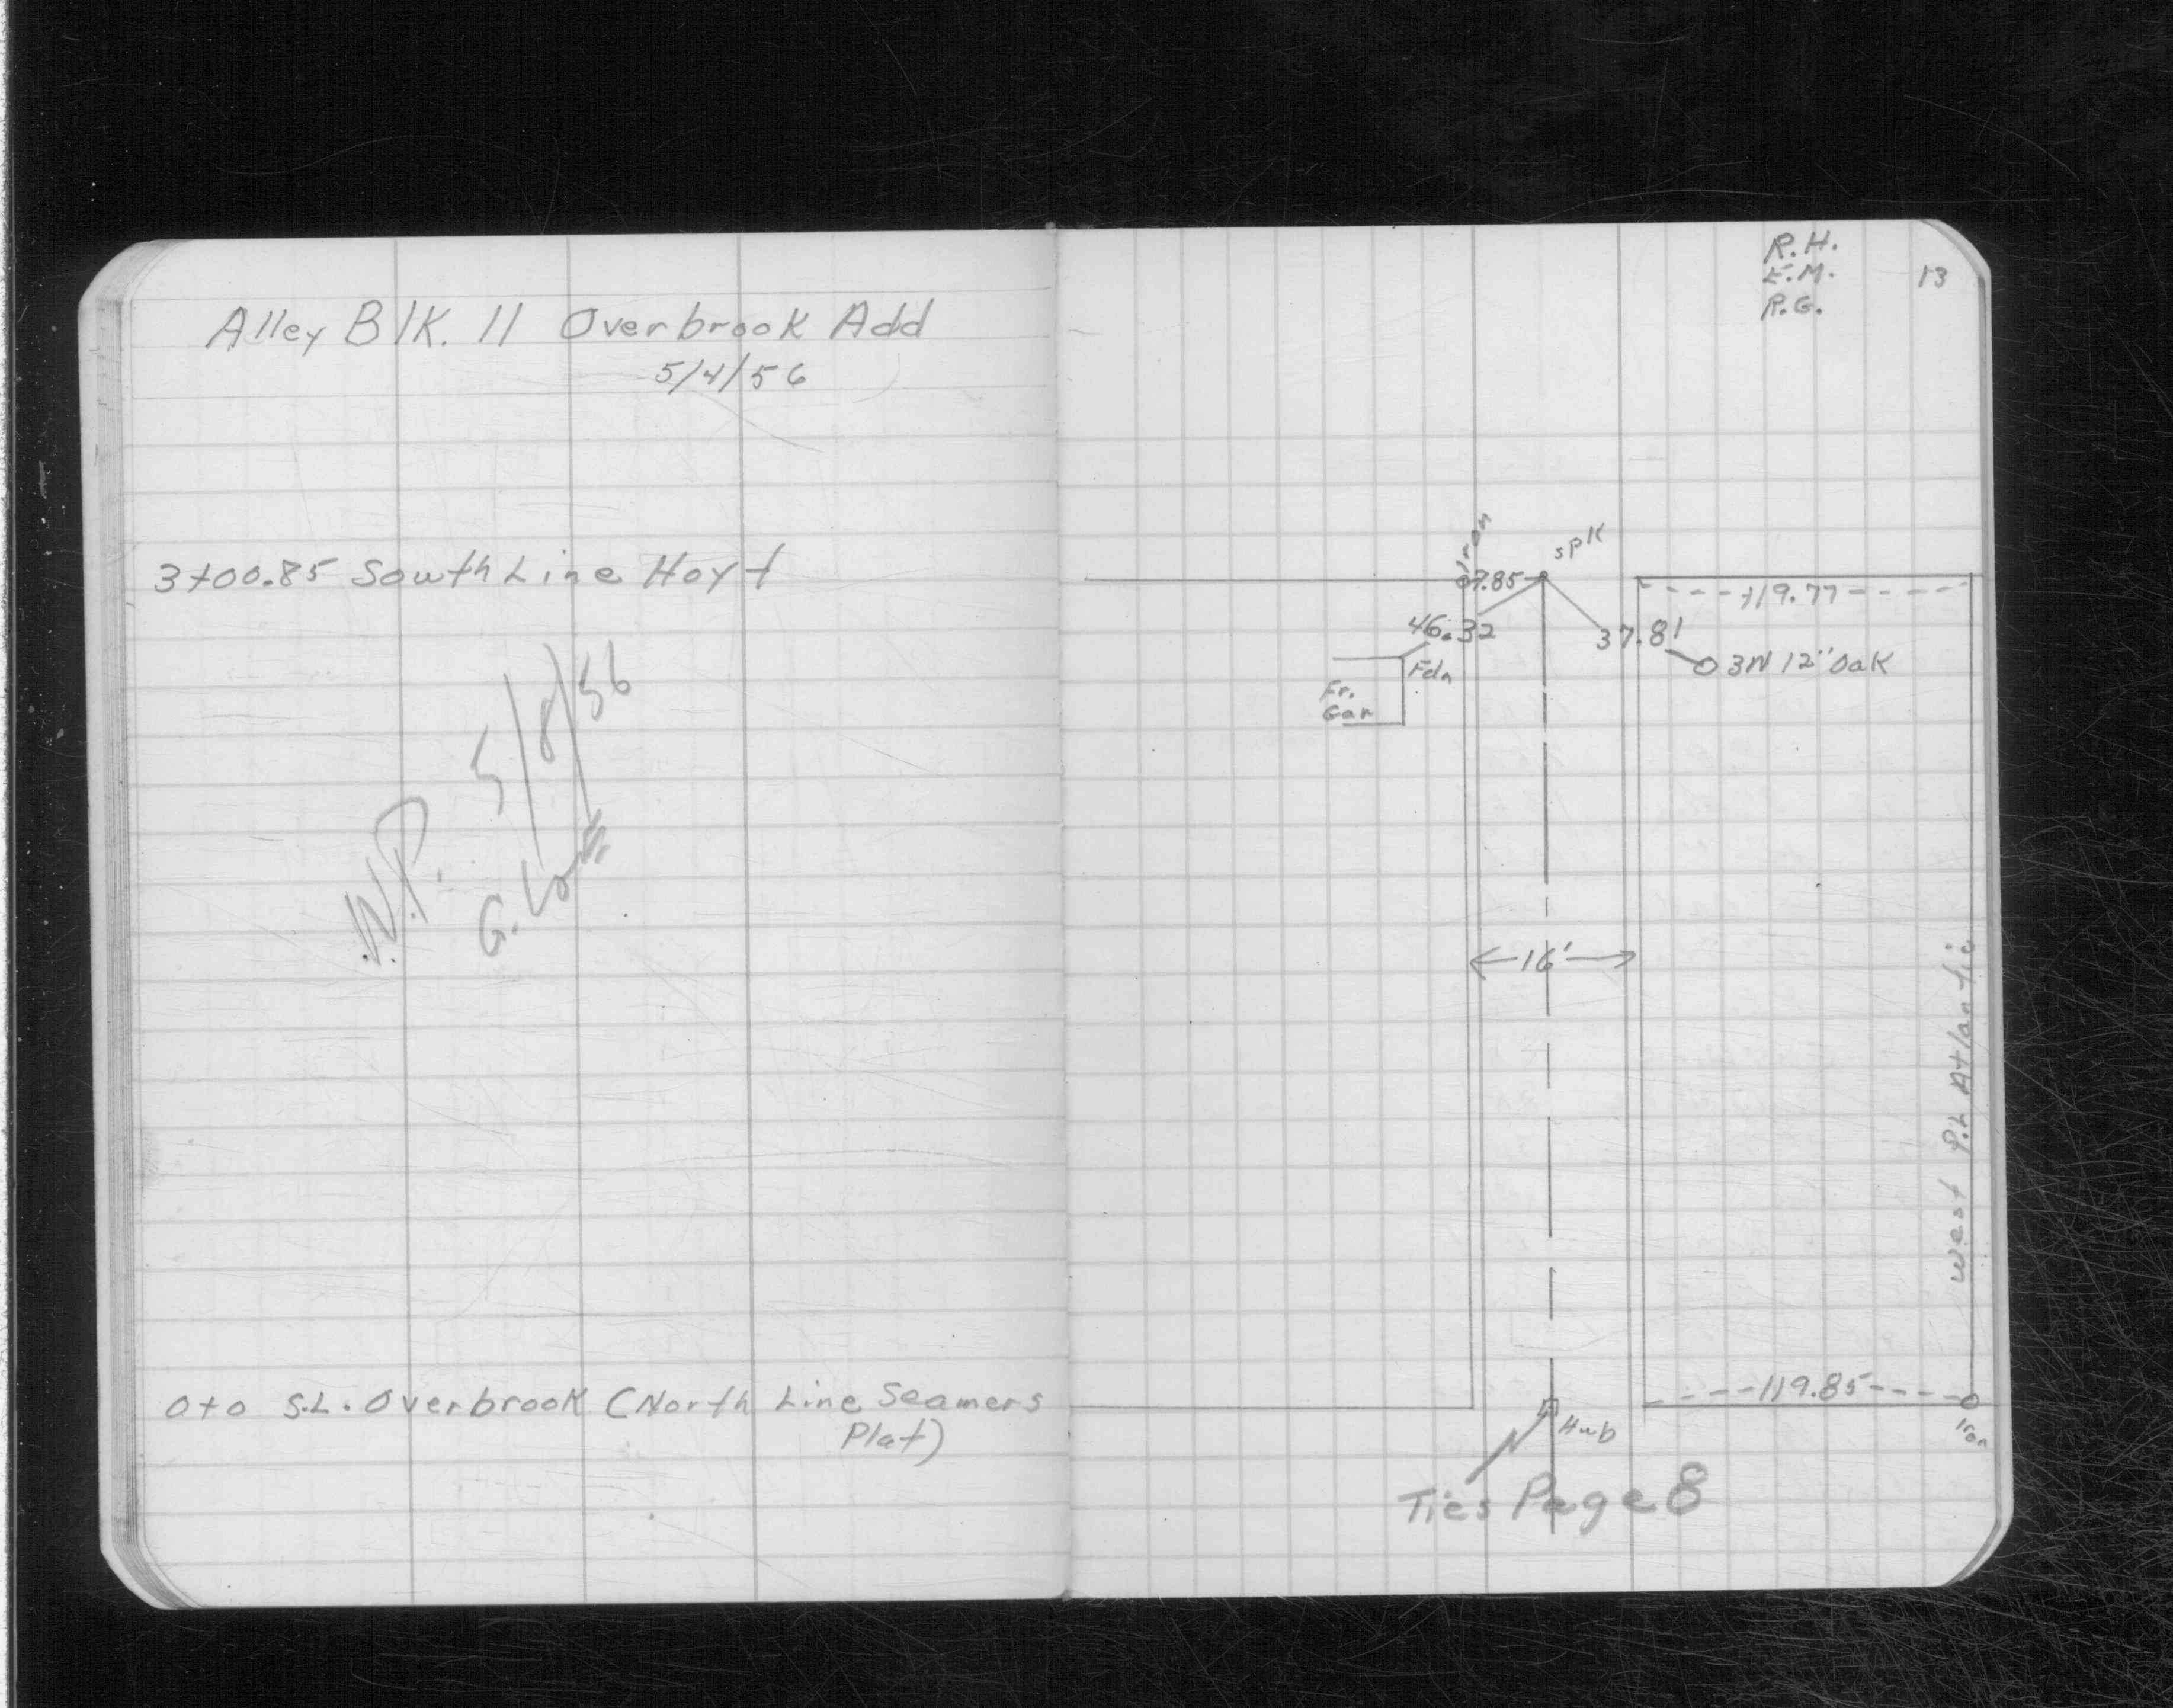 Alley Blk. 11 Overbrook Add
5/4/56
3+00.85 South Line Hoyt
W.P. 5/8/56
G.
0+0 S.L. Overbrook (North Line Seamers
Plat)
R.H.
E.M.
R.G.
13
Iron
spk
7.85
119.77
46.32
37.81
Fdn
3N 12" Oak
Fr.
Gar
16'
West P.L Atlantic
119.85
Hub
Iron
Ties Page 8